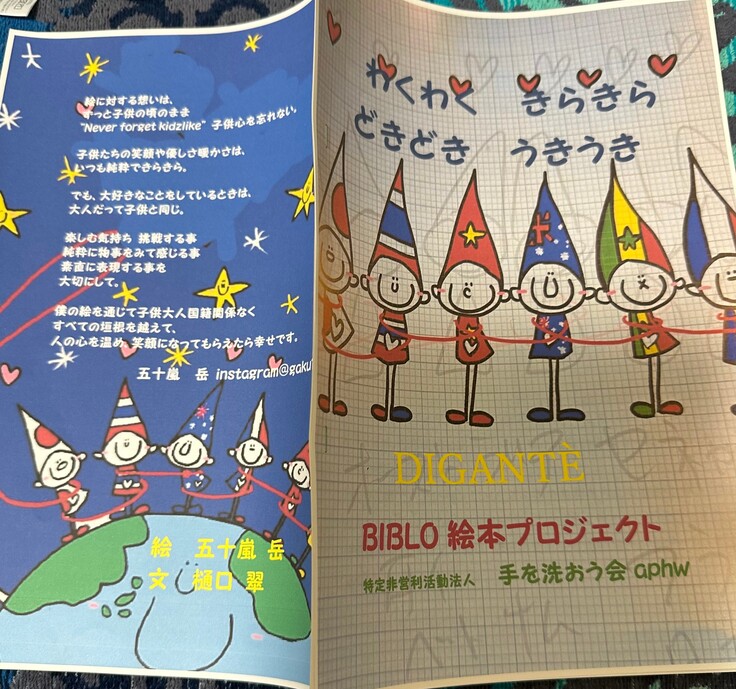 絵に対する想いは、
ずっと子供の頃のまま
"Never forget kidzlike" 子供心を忘れない。
子供たちの笑顔や優しさ暖かさは、
いつも純粋できらきら。
でも、大好きなことをしているときは、
大人だって子供と同じ。
楽しむ気持ち 挑戦する事
純粋に物事をみて感じる事
素直に表現する事を
大切にして。
僕の絵を通じて子供大人国籍関係なく
すべての垣根を越えて、
人の心を温め、笑顔になってもらえたら幸せです。
五十嵐 岳 instagram@gaku
絵 五十嵐 岳
文 樋口 翠
わくわく きらきら
どきどき うきうき
DIGANTÈ
BIBLO 絵本プロジェクト
特定非営利活動法人 手を洗おう会 aphw